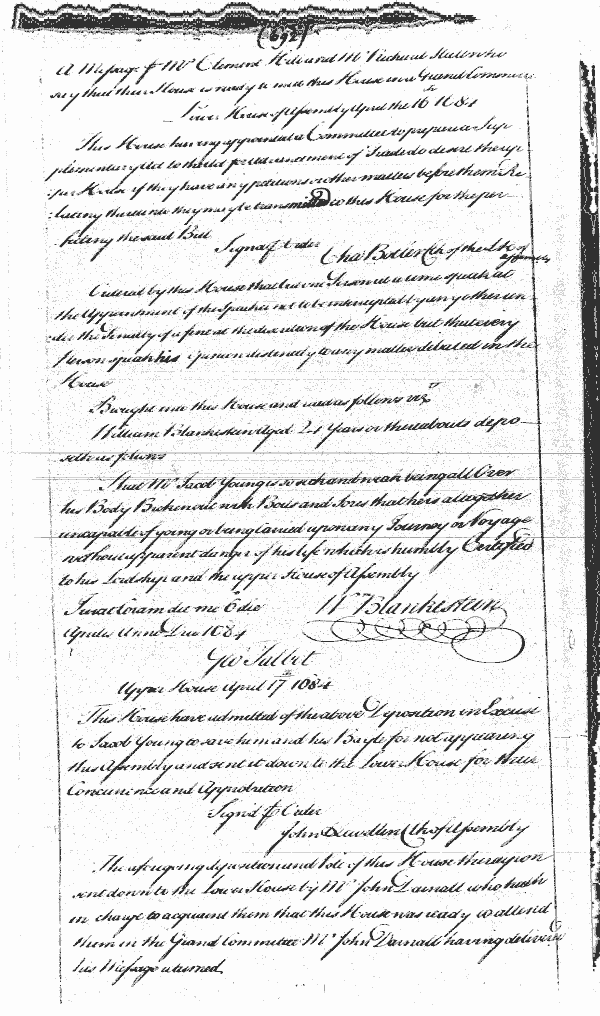 (692)
A Message ⅌ Mr Clement Hill and Mr Richard Hall who
say that their House is ready to meet this House in a Grand Committee
Lower House of Assembly April the 16th 1684
This House having appointed a Committee to prepare a Sup
plementary Act to the Act for Advancement of Trade do desire the up
per House if they have any petitions or other matters before them Re
lating thereunto they may be transmitted to this House for the per
fecting the said Bill
Signed ⅌ Order
Cha Boteler Clk of the L H of
Assembly
Ordered by this House that but one Person at a time speak at
the Appointment of the Speaker not to be interrupted by any other un
der the Penalty of a fine at the discretion of the House but that every
Person speak his Opinion distinctly to every matter debated in the
House
Brought into this House and read as follows vizt
William Blankestein Aged 24 Years or thereabouts depo
seth as follows
That Mr Jacob Young is so sick and weak being all Over
his Body Broken out with Boils and Sores that he is altogether
uncapable of going or being Carried upon any Journey or Voyage
without apparent danger of his life which is humbly Certified
to his Lordship and the upper House of Assembly
Jurat Coram die me 6 die
Wm Blankestein
Aprilis Anno Dni 1684
Geo Talbot
Upper House April 17th 1684
This House have admitted of the above Deposition in Excuse
to Jacob Young to save him and his Bayle for not appearing
this Assembly and sent it down to the Lower House for their
Concurrence and Approbation
Signed ⅌ Order
John Llewellin Clk of Assembly
The aforegoing deposition and Vote of this House thereupon
sent down to the Lower House by Mr John Darnall who hath
in charge to acquaint them that this House was ready to attend
them in the Grand Committee Mr John Darnall having delivered
his Message returned